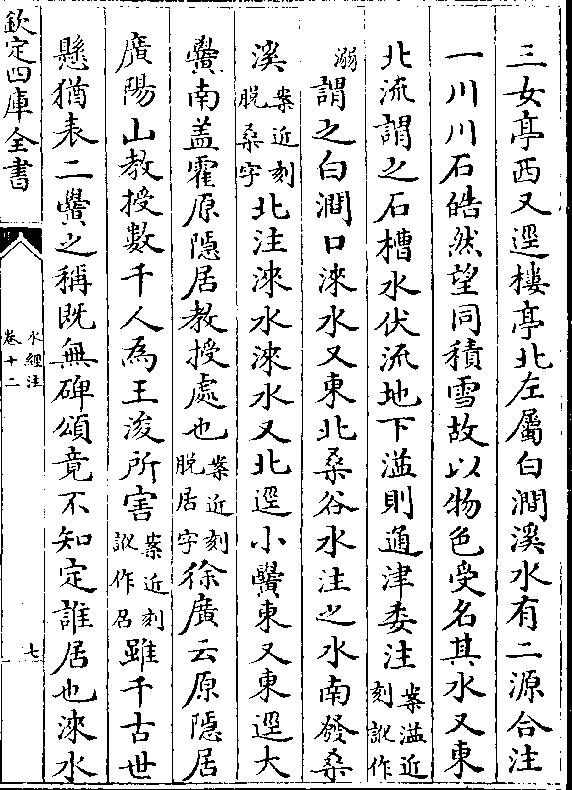 三女亭西又逕樓亭北左屬白澗溪水有二源合注
一川川石皓然望同積雪故以物色受名其水又東
北流謂之石槽水伏流地下溢則通津委注案溢近刻訛作
溺謂之白澗口淶水又東北桑谷水注之水南發桑
溪案近刻脱桑字北注淶水淶水又北逕小黌東又東逕大
黌南蓋霍原隱居教授處也案近刻脱居字徐廣云原隱居
廣陽山教授數千人為王浚所害案近刻訛作居雖千古世
懸猶表二黌之稱既無碑頌竟不知定誰居也淶水
欽定四庫全書
水經注
卷十二
七